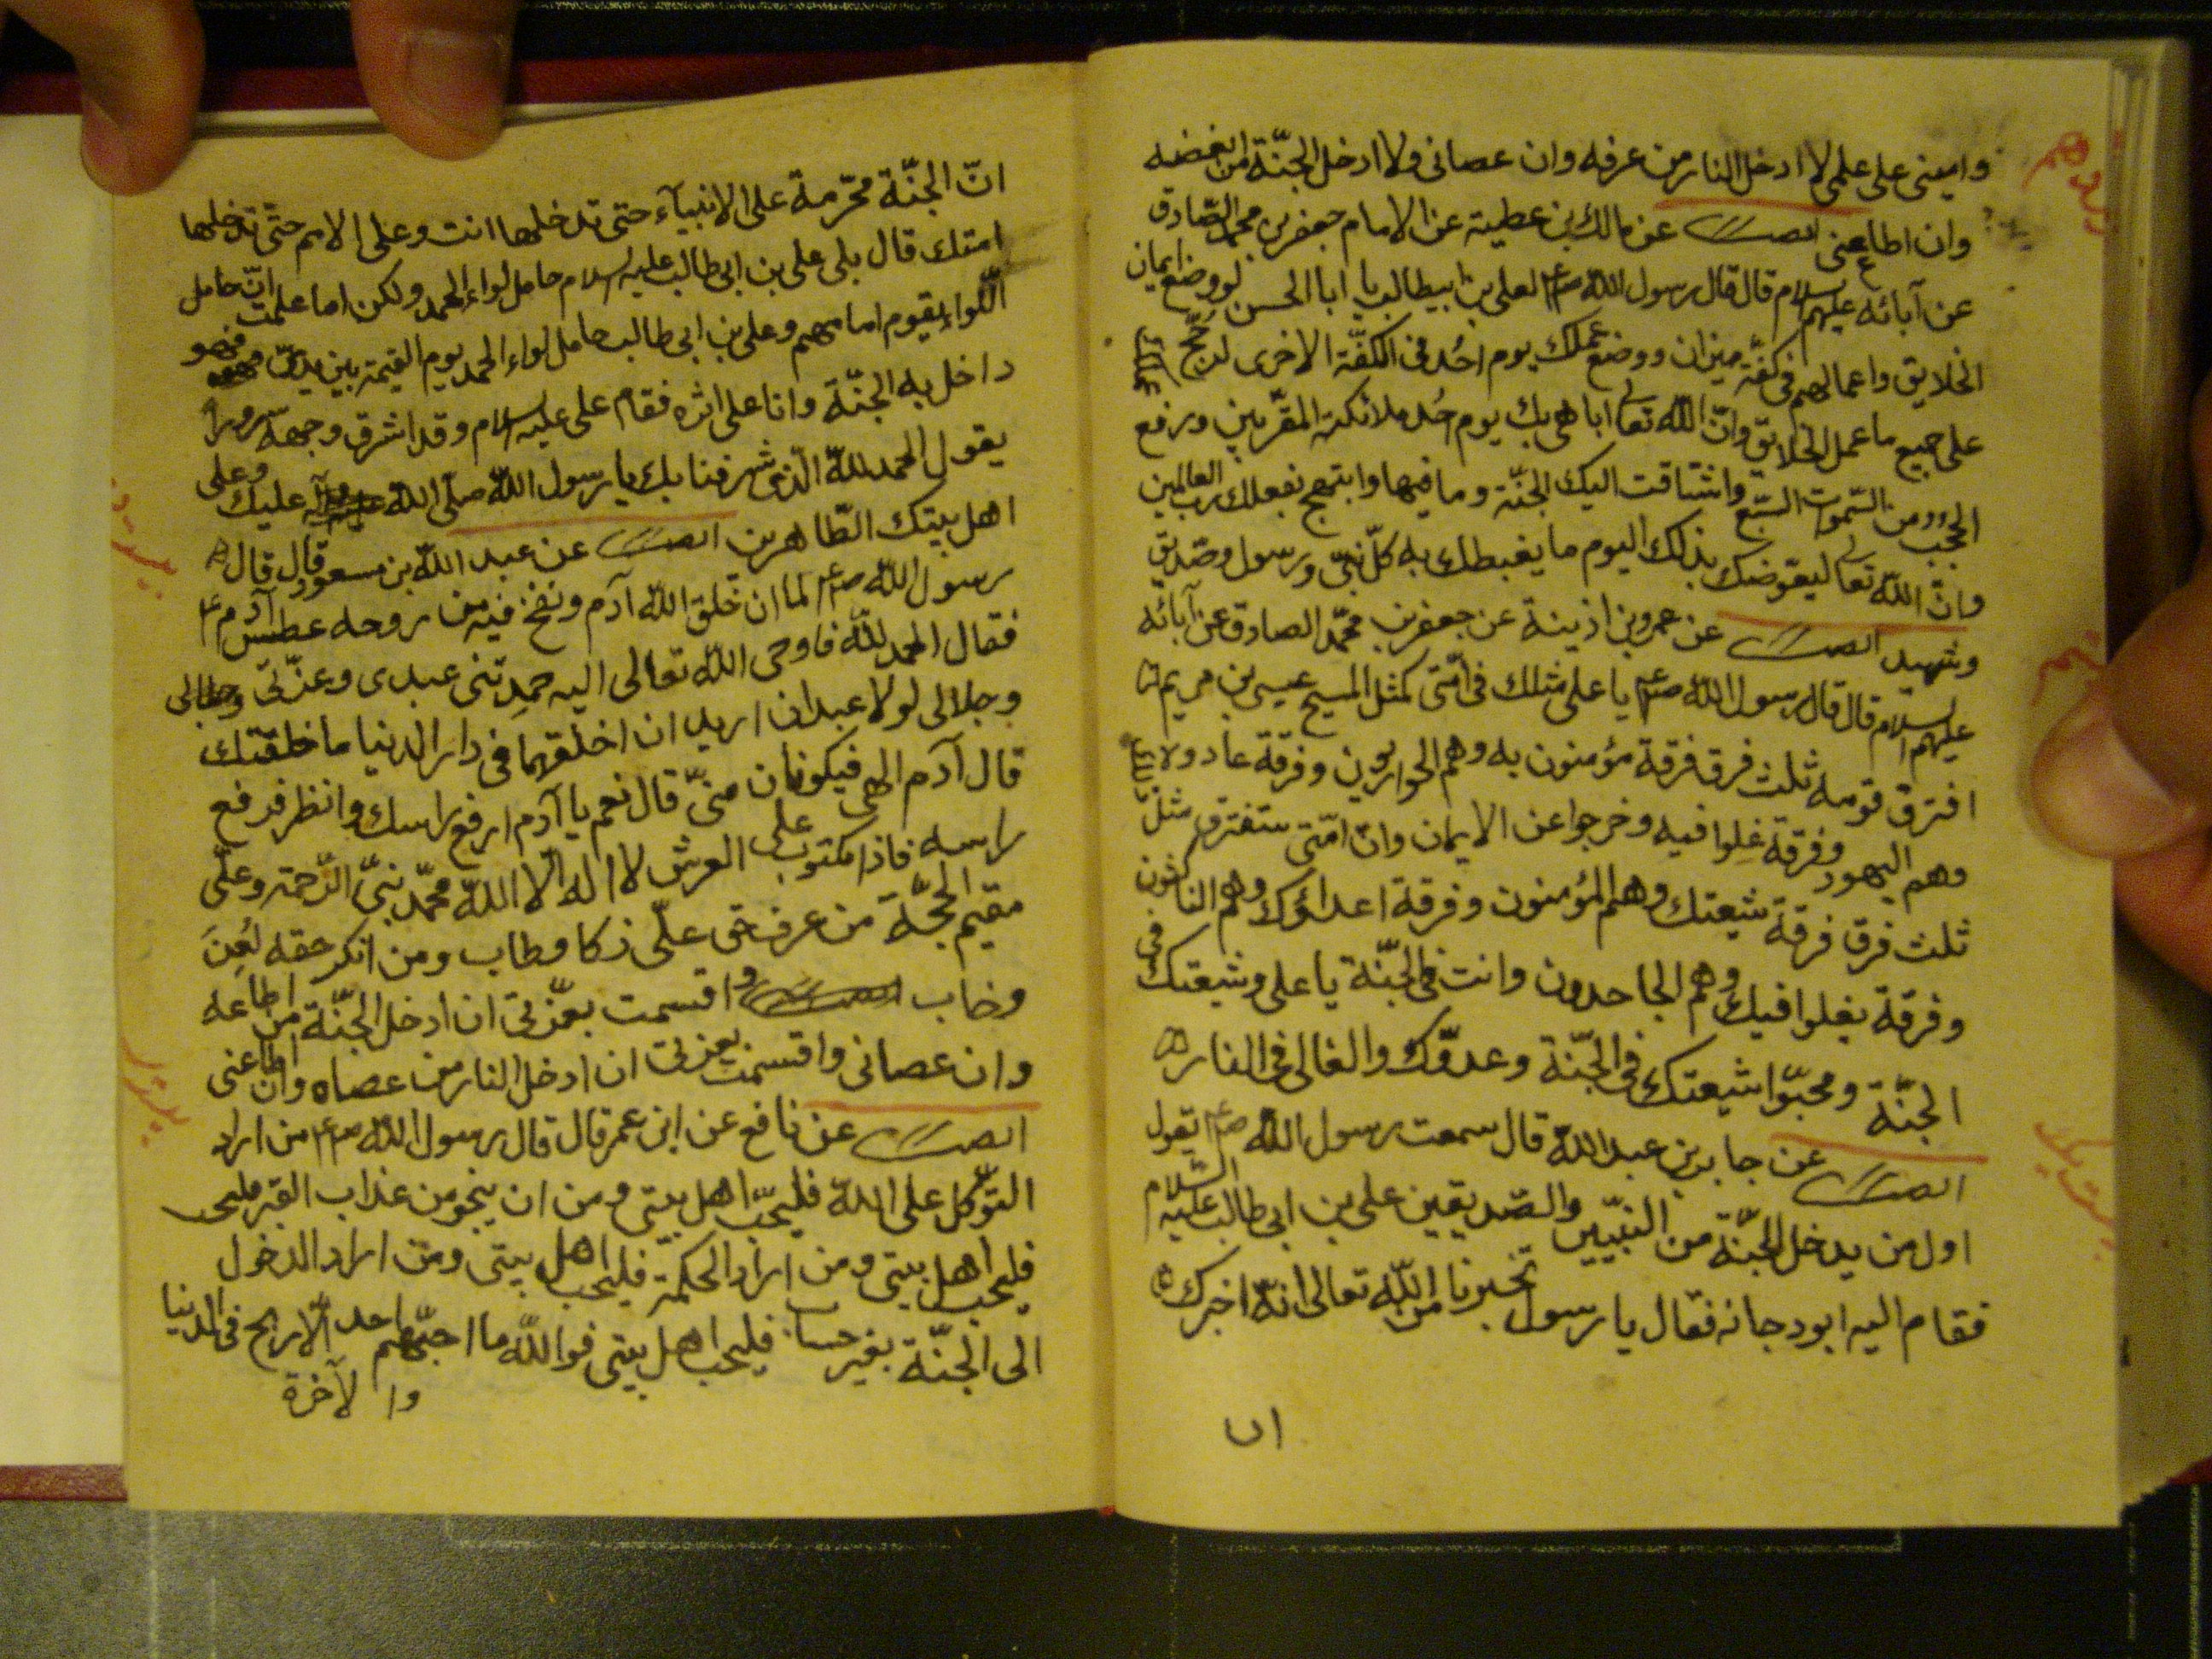 وامينى على علمى لا ادخل النار من عرفه وان عصانى ولا ادخل الجنّة من ابغضه
وان اطاعنى عن مالك بن عطية عن الامام جعفر بن محمد الصّادق
عن آبائه عليهم السلام قال قال رسول الله لعلى بن ابيطالب يا ابا الحسن لو وضع ايمان
الخلايق واعمالهم فى كفّة ميزان ووضع عملك يوم احُد فى الكفّة الاخرى لرجّح
على جميع ما عمل الخلايق وانّ الله تعالى اباهى بك يوم احُد ملائكته المقرّبين ورفع
الحجب من السّموات السّبع واشتاقت اليك الجنّة وما فيها وابتهج بفعلك رب العالمين
وانّ الله تعالى ليعوّضك بذلك اليوم ما يغبطك به كلّ نبىّ ورسول وصدّيق
وشهيد عن عمرو بن اذينة عن جعفر بن محمّد الصادق عن آبائه
عليهم السلام قال قال رسول الله يا على مثلك فى امّتى كمثل المسيح عيسى بن مريم
افترق قومه ثلث فرق فرقة مؤمنون به وهم الحواريون وفرقة عادوه
وهم اليهود وفرقة غلوا فيه وخرجوا عن الايمان وانّ امّتى ستفترق مثل
ثلث فرق فرقة شيعتك وهم المؤمنون وفرقة اعداؤك وهم الناكثون
وفرقة يغلوا فيك وهم الجاحدون وانت فى الجنّة يا على وشيعتك فى
الجنّة ومحبّوا شيعتك فى الجنّة وعدوّك والغالى فى النار
عن جابر بن عبد الله قال سمعت رسول الله يقول
اول من يدخل الجنّة من النبيّين والصّديقين على بن ابى طالب عليه السّلام
فقام اليه ابو دجانه فقال يا رسول تخبرنا من الله تعالى انّه اخبرك
انّ الجنّة محرّمة على الانبيآء حتى تدخلها انت وعلى الامم حتّى تدخلها
امتك قال بلى على بن ابى طالب عليه السلام حامل لواء الحمد ولكن اما علمت انّ حامل
اللّواء يقوم امامهم وعلى بن ابى طالب حامل لواء الحمد يوم القيمة بين يدىّ فهو
داخل به الجنّة وانا على اثره فقام على عليه السلام وقد اشرق وجهه سرورا
يقول الحمد لله الّذى شرفنا بك يا رسول الله صلّى الله عليك وعلى
اهل بيتك الطّاهرين عن عبد الله بن مسعود قال قال
رسول الله لما ان خلق الله آدم ونفخ فيه من روحه عطس آدم
فقال الحمد لله فاوحى الله تعالى اليه حمدتنى عبدى وعزّتى
وجلالى لولا عبدان اريد ان اخلقهما فى دار الدنيا ما خلقتك
قال آدم الهى فيكونان منىّ قال نعم يا آدم ارفع راسك وانظر فرفع
راسه فاذا مكتوب على العرش لا اله الّا الله محمّد نبىّ الرّحمة وعلّى
مقيم الحجّة من عرف حق علّى زكا وطاب ومن انكر حقه لُعِنَ
وخاب واقسمت بعزّتى ان ادخل الجنّة من اطاعه
وان عصانى واقسمت بعزتى ان ادخل النار من عصاه وان اطاعنى
عن نافع عن ابن عمر قال قال رسول الله من اراد
التوكّل على الله فليحبّ اهل بيتى ومن ان ينجو من عذاب القبر
فليحب اهل بيتى ومن اراد الحكمة فليحب اهل بيتى ومن اراد الدخول
الى الجنّة بغير حساب فليحب اهل بيتى فوالله ما احبّهم احد الّا ربح فى الدنيا
والآخرة